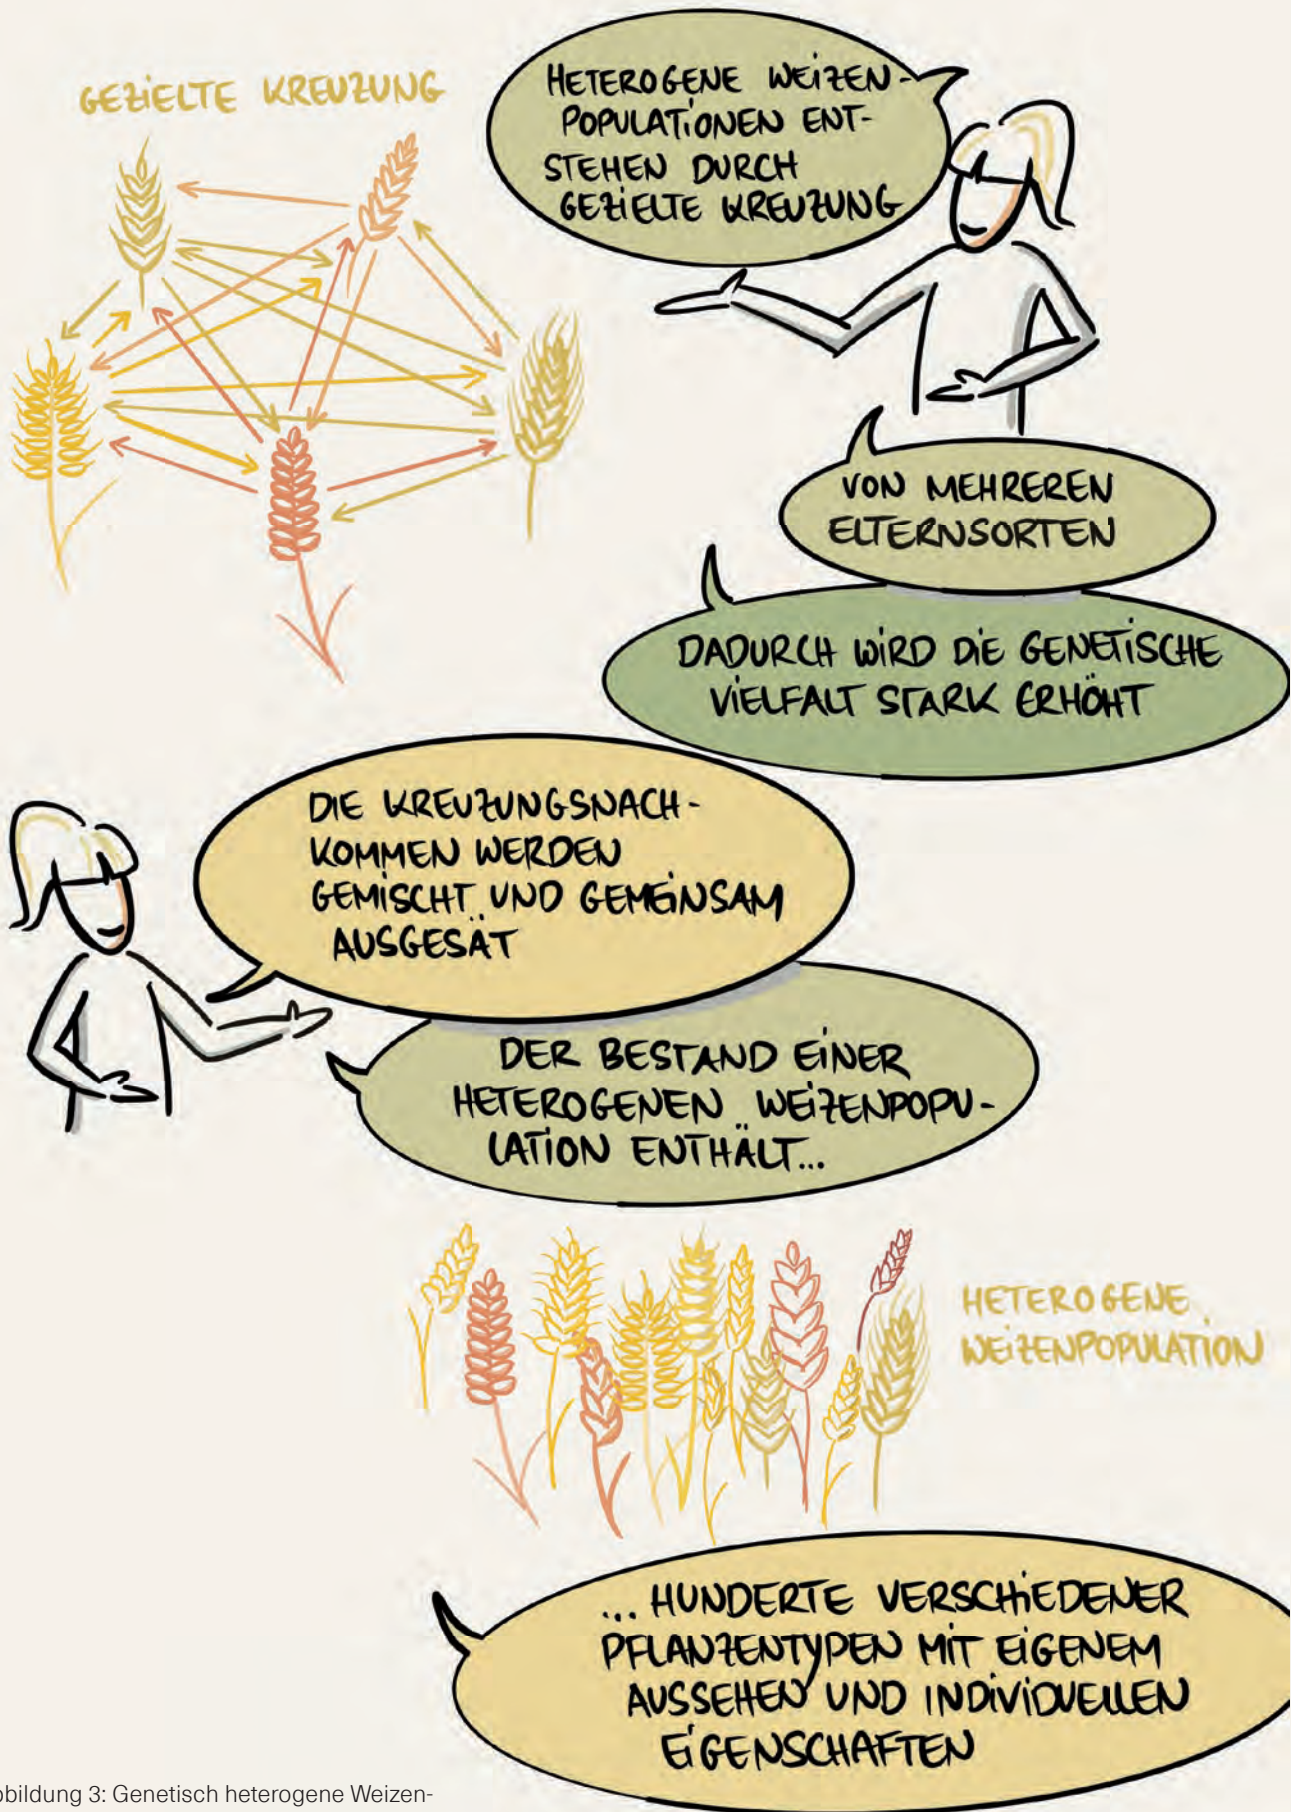 GEZIELTE KREUZUNG
HETEROGENE WEIZEN-
POPULATIONEN ENT-
STEHEN DURCH
GEZIELTE KREUZUNG
VON MEHREREN
ELTERNSORTEN
DADURCH WIRD DIE GENETISCHE
VIELFALT STARK ERHÖHT
DIE KREUZUNGSNACH-
KOMMEN WERDEN
GEMISCHT UND GEMEINSAM
AUSGESÄT
DER BESTAND EINER
HETEROGENEN WEIZENPOPU-
LATION ENTHÄLT...
HETEROGENE
WEIZENPOPULATION
... HUNDERTE VERSCHIEDENER
PFLANZENTYPEN MIT EIGENEM
AUSSEHEN UND INDIVIDUELLEN
EIGENSCHAFTEN
bbildung 3: Genetisch heterogene Weizen-